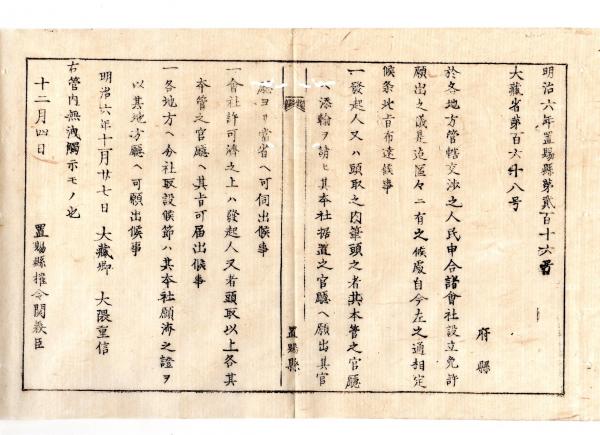 明治六年置賜縣第貳百十六号
大藏省第百六十八号
府縣
於各地方管轄交渉之人民申合諸會社設立免許
願出之儀是迄區々ニ有之候處自今左之通相定
候条此旨布達候事
一發起人又ハ頭取之内筆頭之者其本管之官廳
ヘ添翰ヲ請ヒ其本社据置之官廳ヘ願出其官
廳ヨリ當省ヘ可伺出候事
置賜縣
一會社許可濟之上ハ發起人又者頭取以上各其
本管之官廳ヘ其旨可届出候事
一各地方ヘ分社取設候節ハ其本社願濟之證ヲ
以其地方廳ヘ可願出候事
明治六年十一月廿七日 大藏卿 大隈重信
右管内無洩觸示モノ也
十二月四日
置賜縣権令関義臣